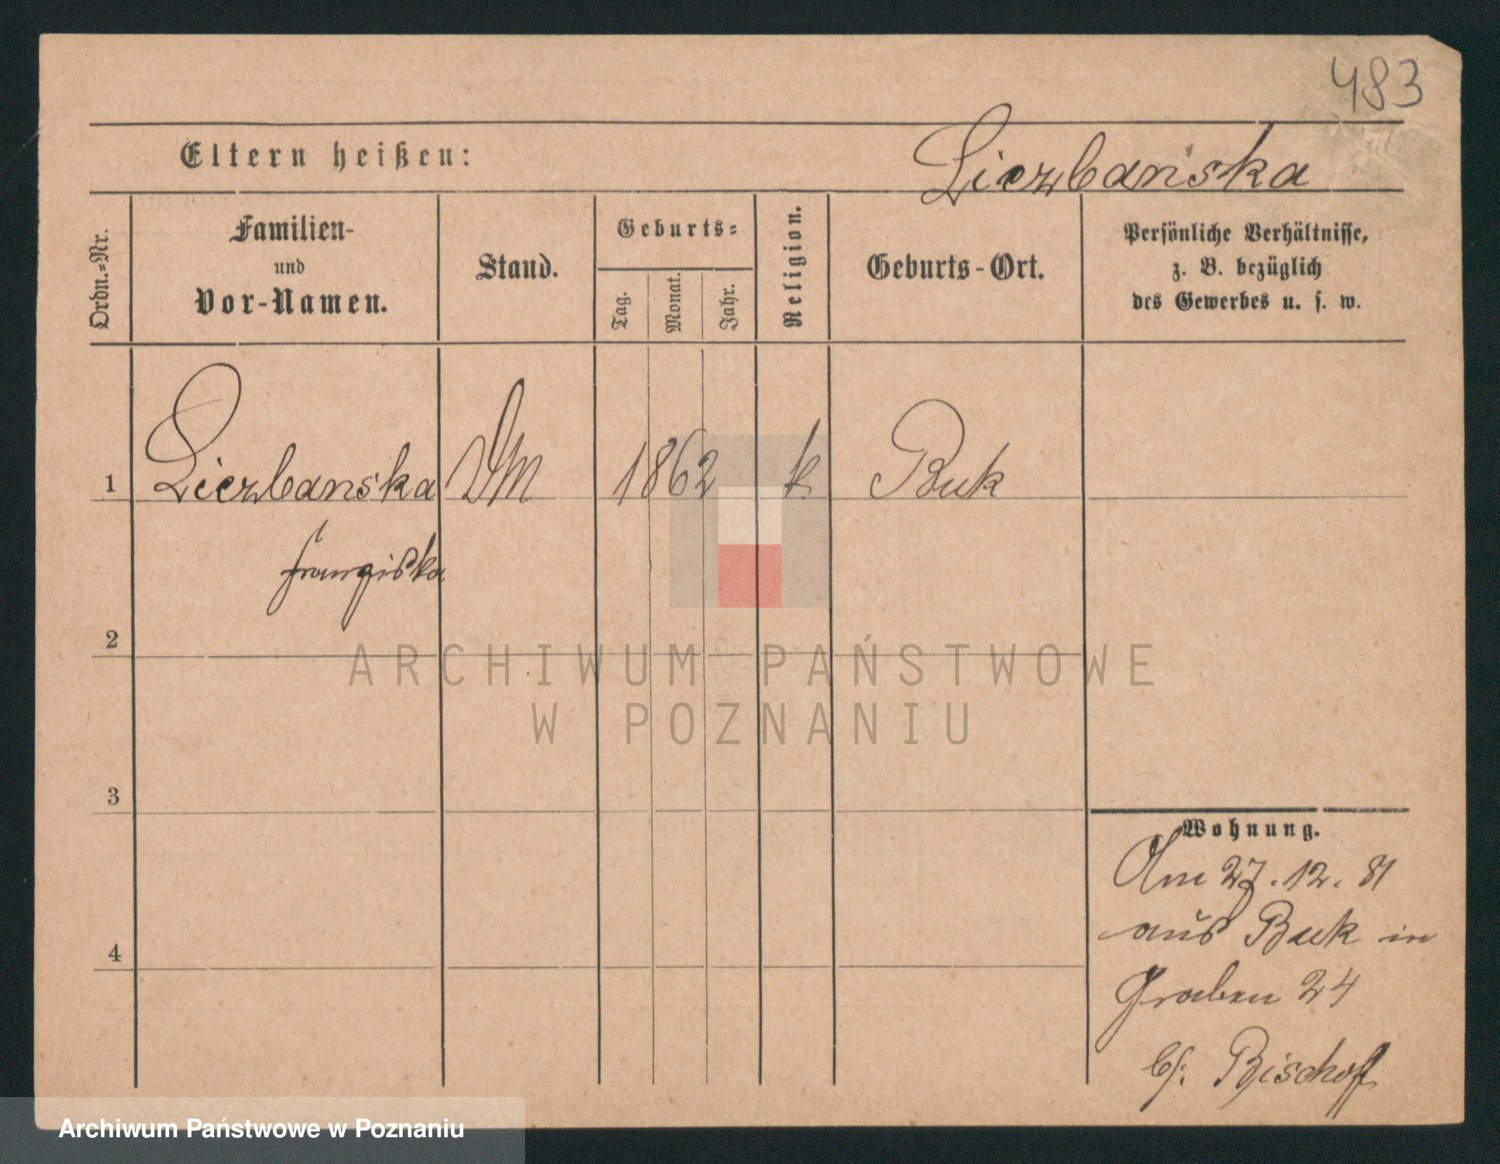 483
Eltern heißen:
Liczbanska
Ordn.=Nr.
Familien-
und
Vor-Namen.
Stand.
Geburts=
Tag.
Monat.
Jahr.
Religion.
Geburts-Ort.
Persönliche Verhältnisse,
z. B. bezüglich
des Gewerbes u. s. w.
1 Liczbanska DM 1862 k Buk
franziska
2
ARCHIWUM PAŃSTWOWE
W POZNANIU
3
Wohnung.
Am 27.12.81
aus Buk in
Graben 24
4
b/. Bischoff
Archiwum Państwowe w Poznaniu